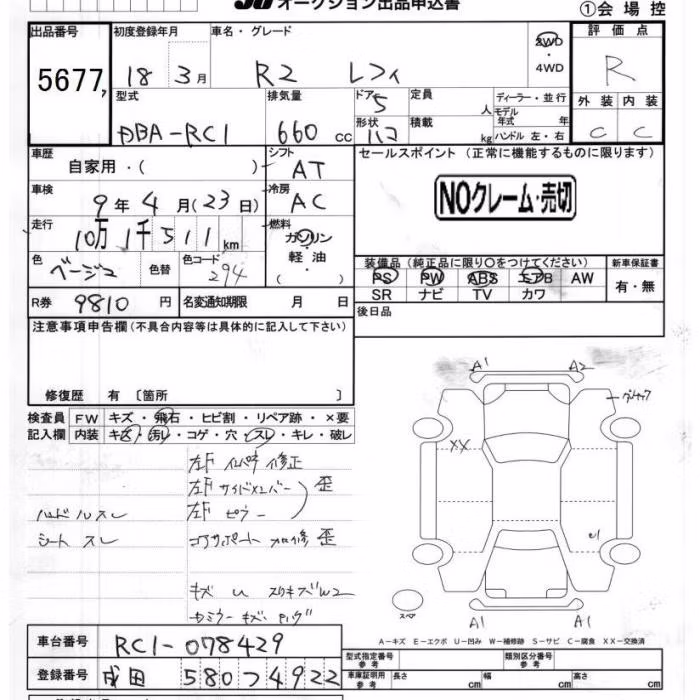 オークション出品申込書
①会場控
出品番号 初度登録年月 車名・グレード 評価点
5677 18 3月 R2 レフィ 2WD ・4WD R
型式 排気量 ドア 定員 ディーラー・並行 外装 内装
DBA-RC1 660cc 5 人 モデル年式 年 C C
形状 積載 kg ハンドル 左・右
ハコ
車歴 自家用・( ) シフト AT セールスポイント (正常に機能するものに限ります)
車検 9年4月(23日) 冷房 AC NOクレーム・売切
走行 10万1千511km 燃料 ガソリン・軽油・( )
色 ベージュ 色替 色コード 294
装備品(純正品に限り〇をつけてください) 新車保証書
PS PW ABS エアB AW 有・無
SR ナビ TV カワ
R券 9810円 名変通知期限 月 日 後日品
注意事項申告欄(不具合内容等は具体的に記入して下さい)
修復歴 有 〔箇所 〕
検査員 FW キズ・飛石・ヒビ割・リペア跡・×要
記入欄 内装 キズ・汚レ・コゲ・穴・スレ・キレ・破レ
A1 A2
XX
修正
左F サイドメンバー 歪
左F ピラー
ハンドルスレ
シート スレ
コアサポート 修 歪
スペア
A1 A1
A-キズ E-エクボ U-凹み W-補修跡 S-サビ C-腐食 XX-交換済
車台番号 RC1-078429
型式指定番号 参考 類別区分番号 参考
登録番号 成田 580 つ 4922
車庫証明用 参考 長さ cm 幅 cm 高さ cm